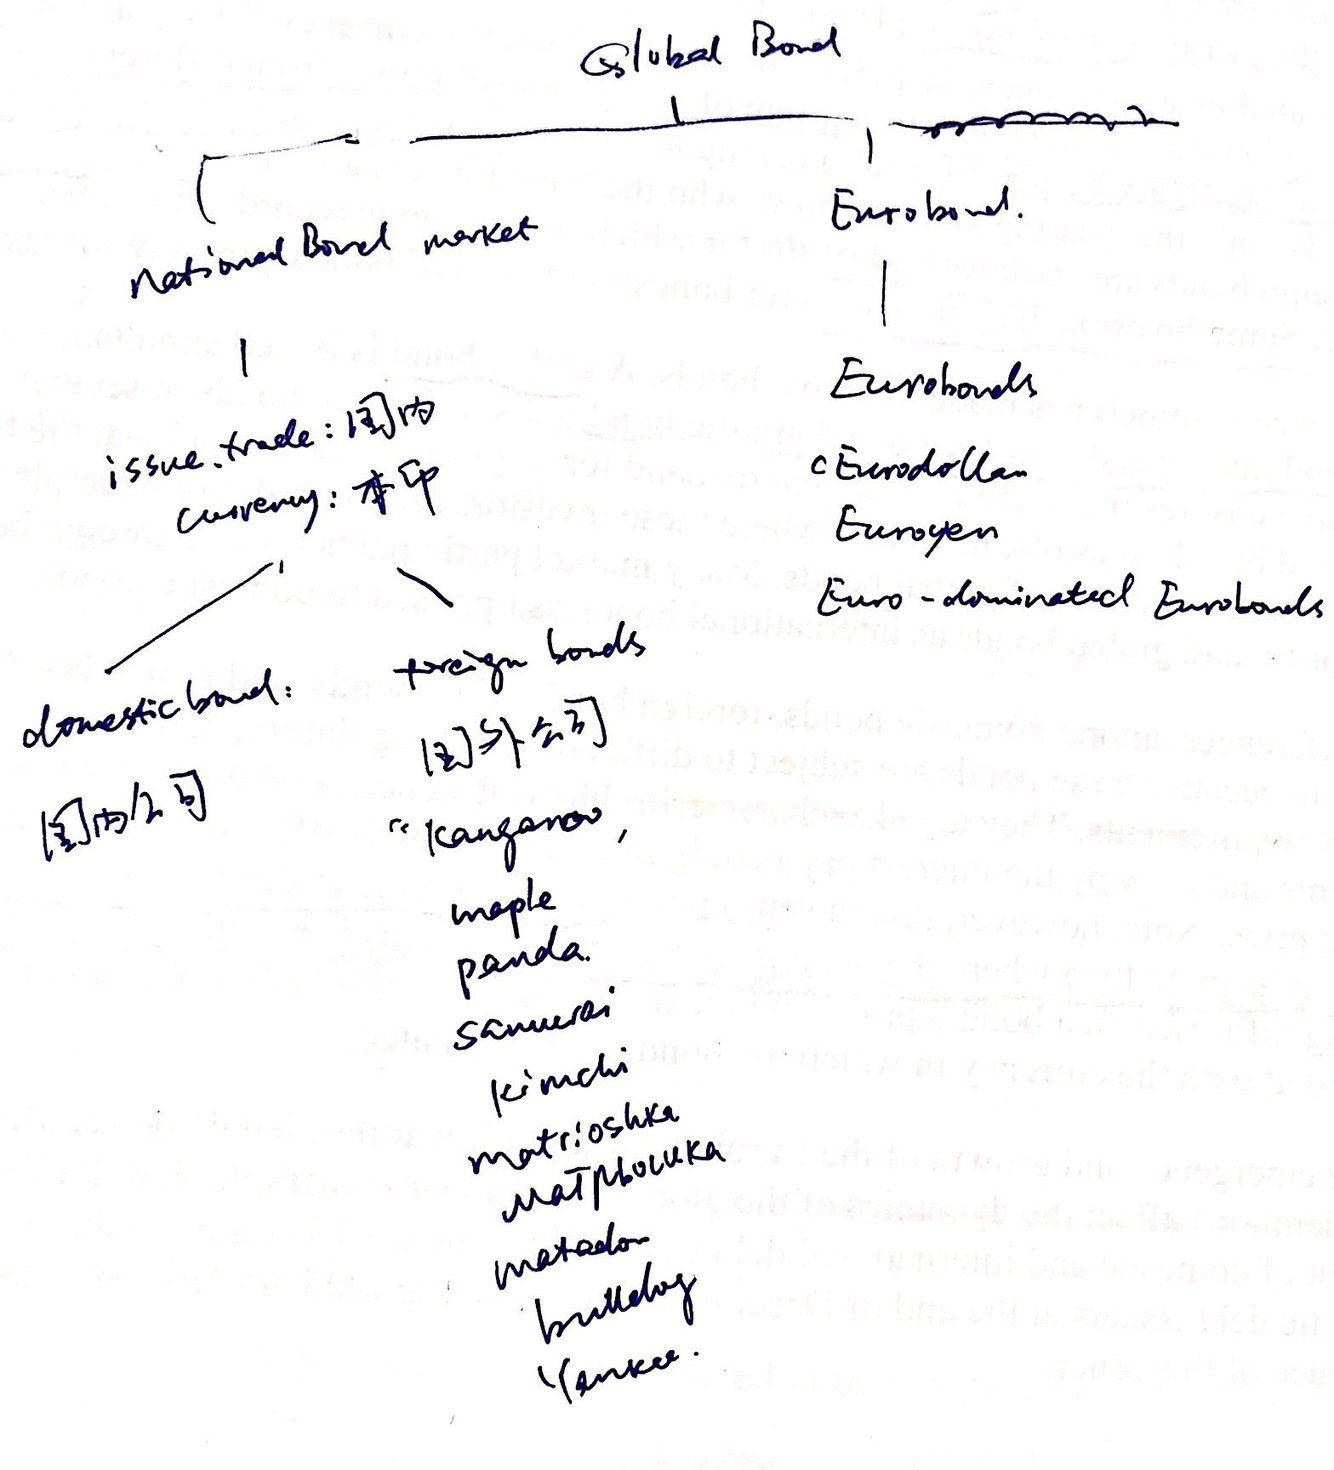 Global Bond
National Bond market
Eurobond.
issue. trade: 国内
currency: 本印
Eurobonds
Eurodollar
Euroyen
Euro-dominated Eurobonds
domestic bond:
国内公司
foreign bonds
国外公司
"Kangaroo,
maple
panda.
samurai
kimchi
matrioshka
матрьошка
matador
bulldog
Yankee.